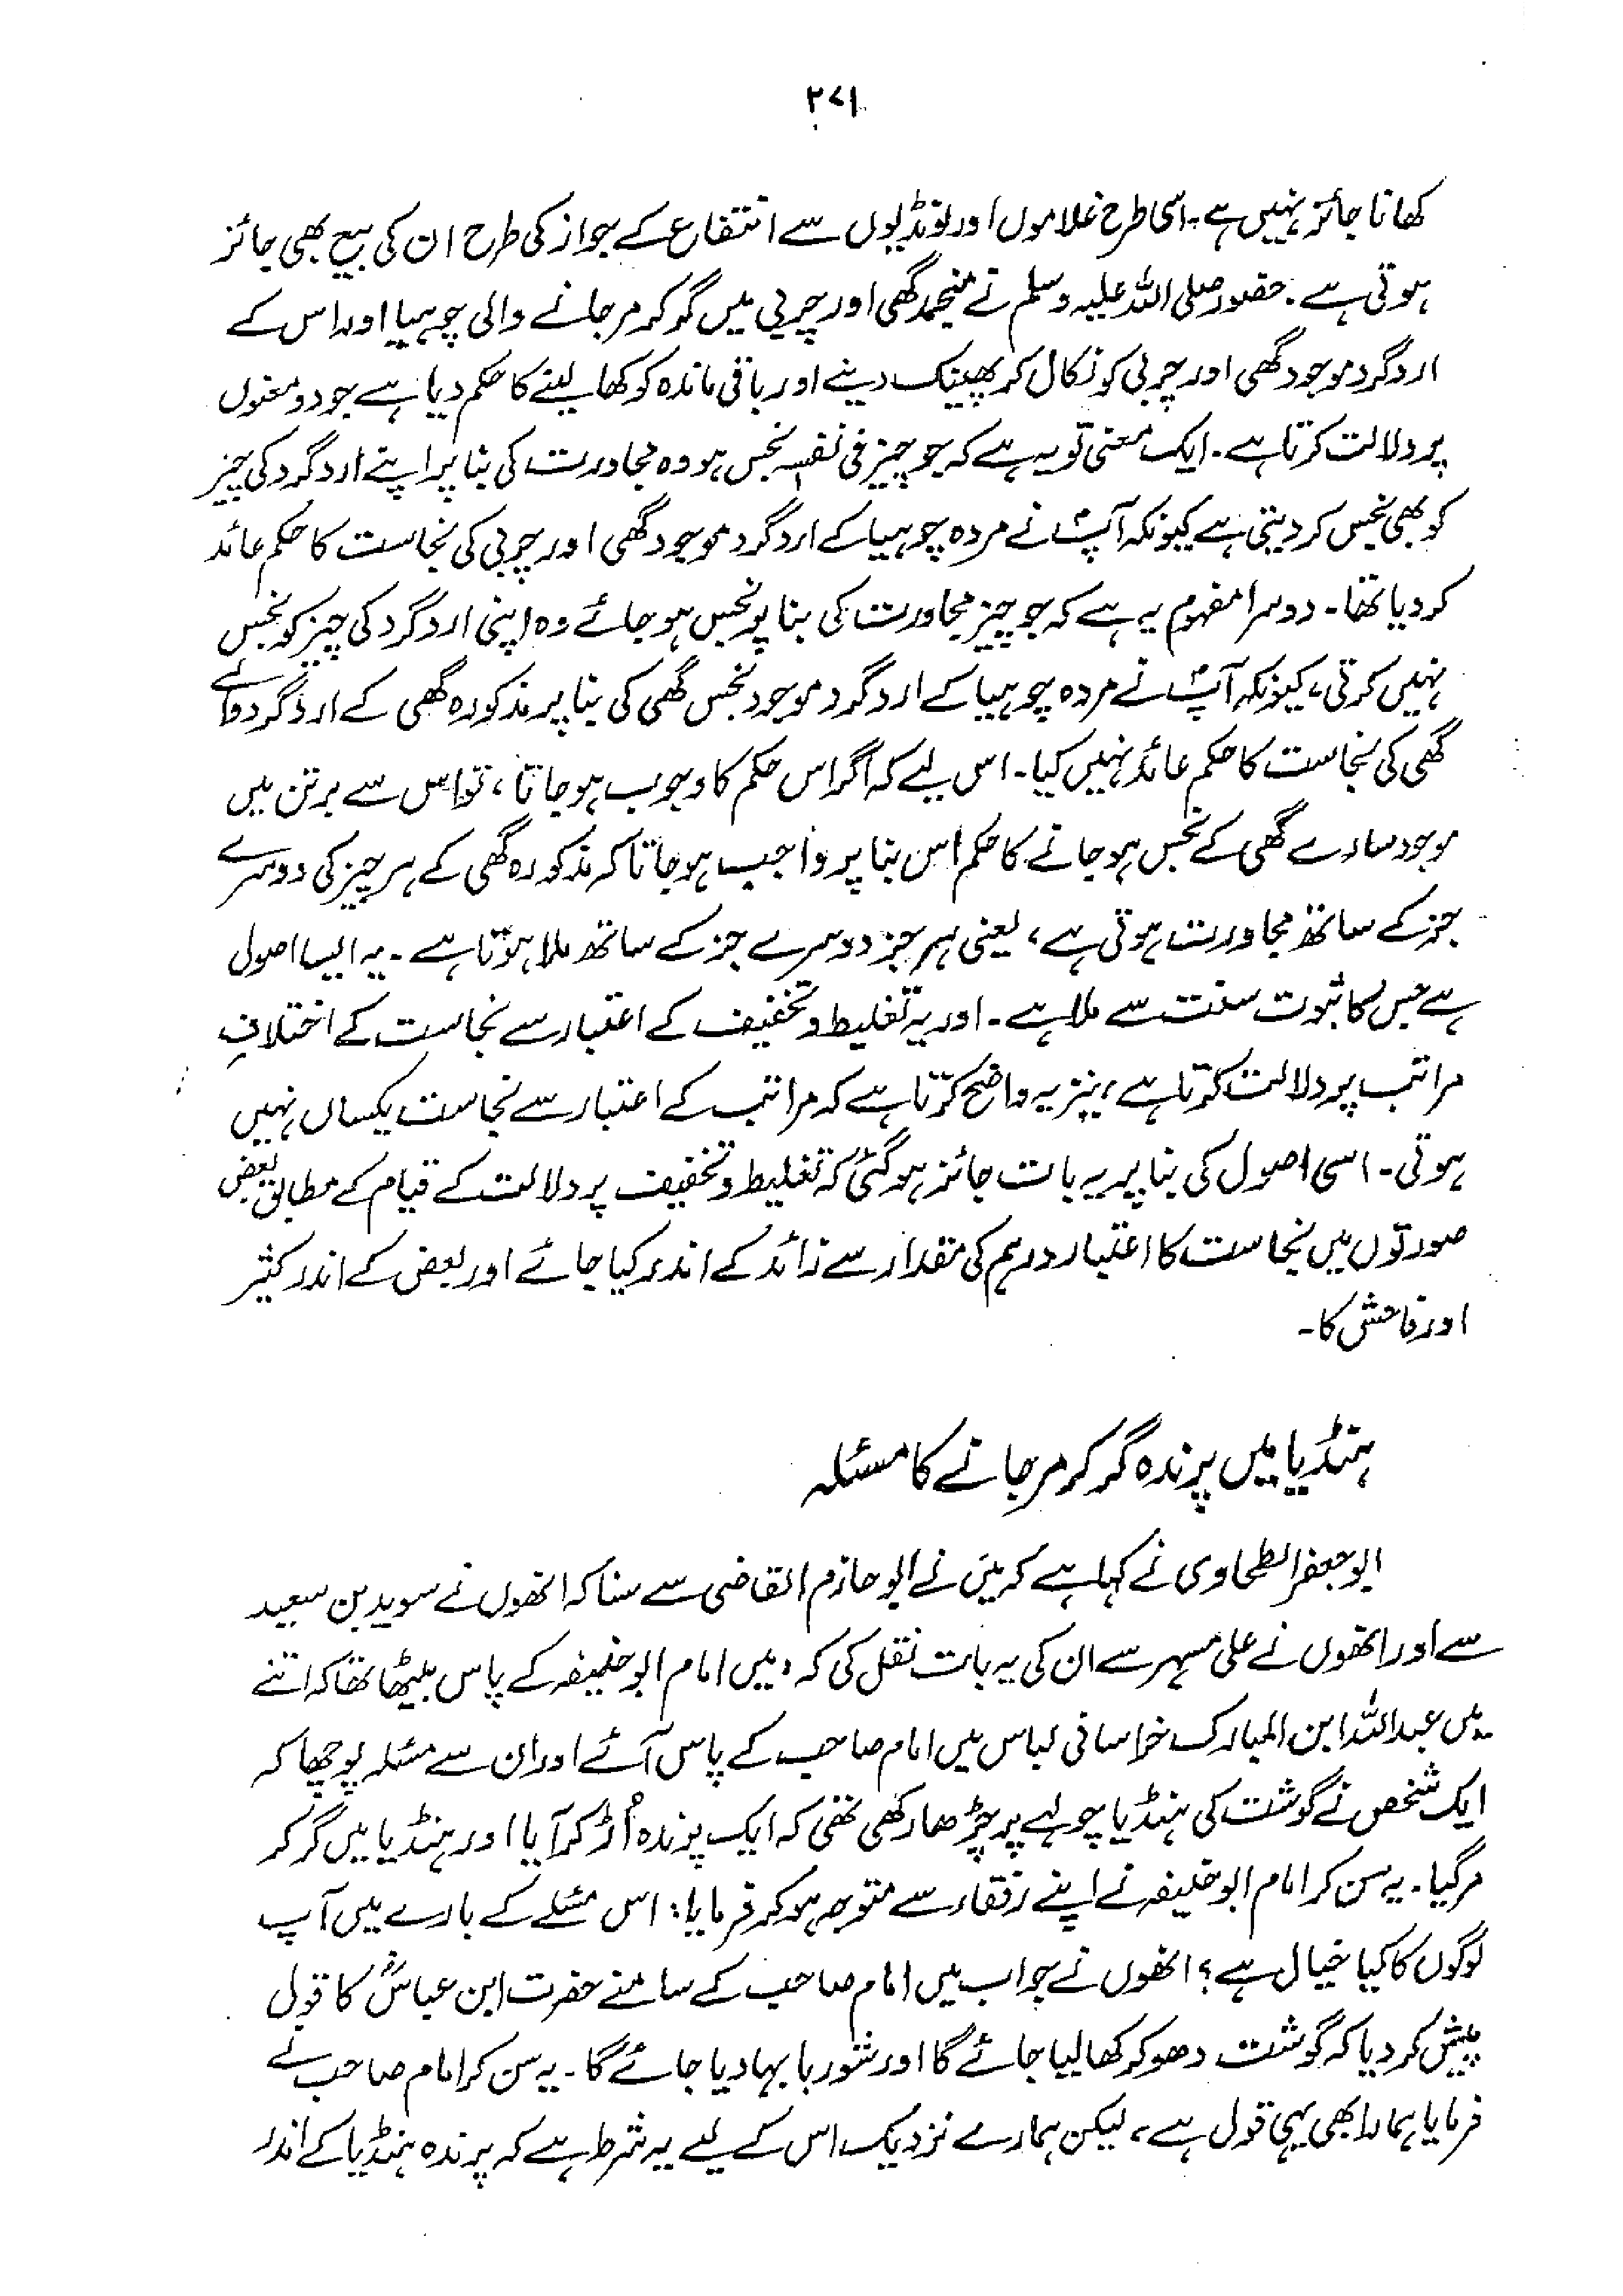 ۲۷۱
کھانا جائز نہیں ہے۔ اسی طرح غلاموں اور لونڈیوں سے انتفاع کے جواز کی طرح ان کی بیع بھی جائز
ہوتی ہے۔ حضور صلی اللہ علیہ وسلم نے منجمد گھی اور چربی میں گر کر مر جانے والی چوہیا اور اس کے
اردگرد موجود گھی اور چربی کو نکال کر پھینک دینے اور باقی ماندہ کو کھا لینے کا حکم دیا ہے جو دو معنوں
پر دلالت کرتا ہے۔ ایک معنی تو یہ ہے کہ جو چیز فی نفسہٖ نجس ہو وہ مجاورت کی بنا پر اپنے اردگرد کی چیز
کو بھی نجس کر دیتی ہے کیونکہ آپؐ نے مردہ چوہیا کے اردگرد موجود گھی اور چربی کی نجاست کا حکم عائد
کر دیا تھا۔ دوسرا مفہوم یہ ہے کہ جو چیز مجاورت کی بنا پر نجس ہو جائے وہ اپنی اردگرد کی چیز کو نجس
نہیں کرتی، کیونکہ آپؐ نے مردہ چوہیا کے اردگرد موجود نجس گھی کی بنا پر مذکورہ گھی کے اردگرد والے
گھی کی نجاست کا حکم عائد نہیں کیا۔ اس لیے کہ اگر اس حکم کا وجوب ہو جاتا، تو اس سے برتن میں
موجود سارے گھی کے نجس ہو جانے کا حکم اس بنا پر واجب ہو جاتا کہ مذکورہ گھی کے ہر چیز کی دوسرے
جز کے ساتھ مجاورت ہوتی ہے، یعنی ہر جز دوسرے جز کے ساتھ ملا ہوتا ہے۔ یہ ایسا اصول
ہے جس کا ثبوت سنت سے ملا ہے۔ اور یہ تغلیط و تخفیف کے اعتبار سے نجاست کے اختلافِ
مراتب پر دلالت کرتا ہے، نیز یہ واضح کرتا ہے کہ مراتب کے اعتبار سے نجاست یکساں نہیں
ہوتی۔ اسی اصول کی بنا پر یہ بات جائز ہو گئی کہ تغلیط و تخفیف پر دلالت کے قیام کے مطابق بعض
صورتوں میں نجاست کا اعتبار درہم کی مقدار سے زائد کے اندر کیا جائے اور بعض کے اندر کثیر
اور فاحش کا۔
ہنڈیا میں پرندہ گر کر مر جانے کا مسئلہ
ابو جعفر الطحاوی نے کہا ہے کہ میں نے ابو حازم القاضی سے سنا کہ انھوں نے سوید بن سعید
سے اور انھوں نے علی مسہر سے ان کی یہ بات نقل کی کہ "میں امام ابو حنیفہ کے پاس بیٹھا تھا کہ اتنے
میں عبداللہ ابن المبارک خراسانی لباس میں امام صاحب کے پاس آئے اور ان سے مسئلہ پوچھا کہ
ایک شخص نے گوشت کی ہنڈیا چولہے پر چڑھا رکھی تھی کہ ایک پرندہ اُڑ کر آیا اور ہنڈیا میں گر کر
مر گیا۔ یہ سن کر امام ابو حنیفہ نے اپنے رفقاء سے متوجہ ہو کر فرمایا: اس مسئلے کے بارے میں آپ
لوگوں کا کیا خیال ہے؟ انھوں نے جواب میں امام صاحب کے سامنے حضرت ابن عباسؓ کا قول
پیش کر دیا کہ گوشت دھو کر کھا لیا جائے گا اور شوربا بہا دیا جائے گا۔ یہ سن کر امام صاحب نے
فرمایا ہمارا بھی یہی قول ہے، لیکن ہمارے نزدیک اس کے لیے یہ شرط ہے کہ پرندہ ہنڈیا کے اندر